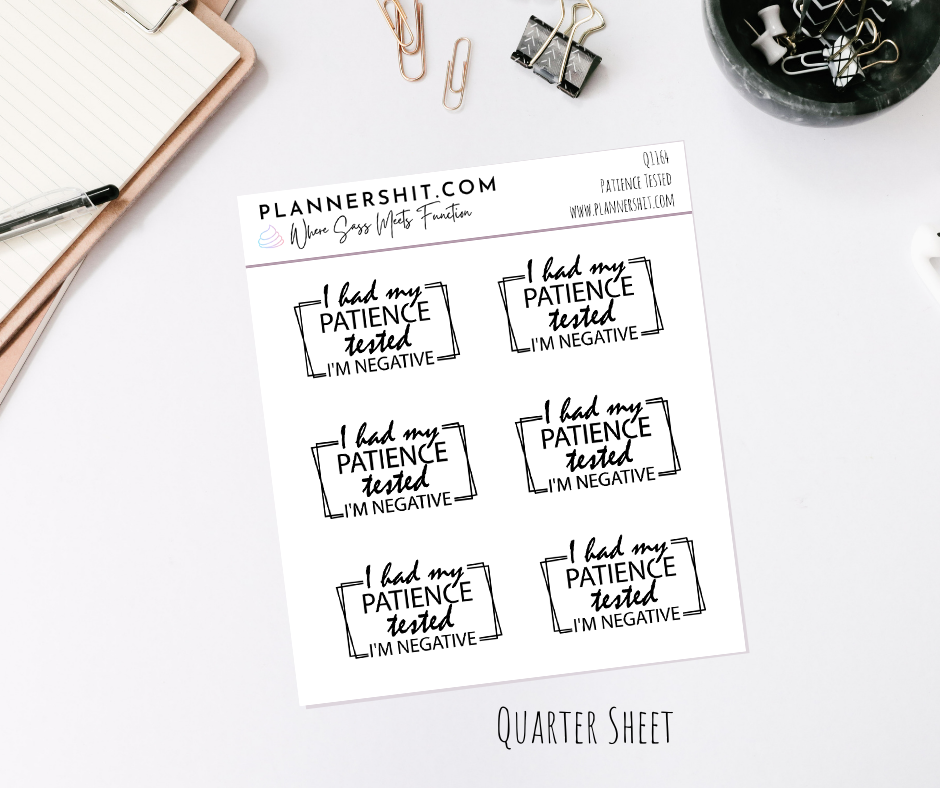 PLANNERSHIT.COM
Where Sass Meets Function
Q1164
Patience Tested
www.plannershit.com
I had my
PATIENCE
tested
I'M NEGATIVE
I had my
PATIENCE
tested
I'M NEGATIVE
I had my
PATIENCE
tested
I'M NEGATIVE
I had my
PATIENCE
tested
I'M NEGATIVE
I had my
PATIENCE
tested
I'M NEGATIVE
I had my
PATIENCE
tested
I'M NEGATIVE
Quarter Sheet